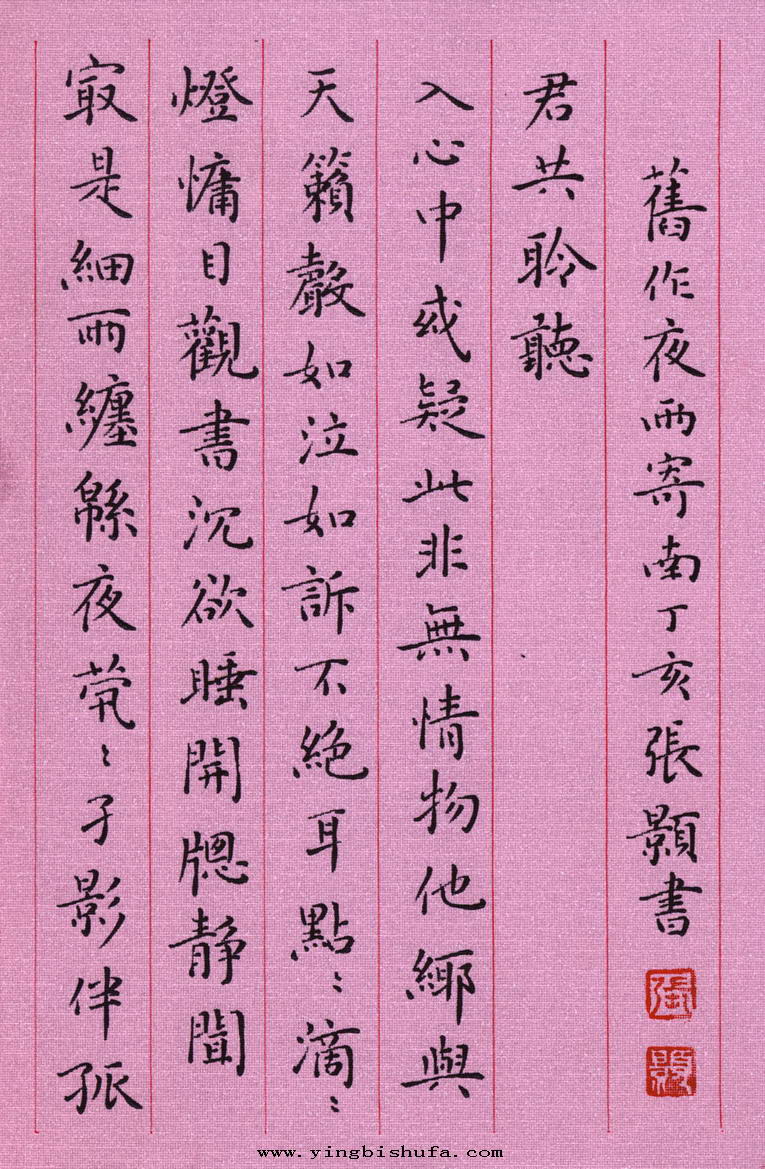 㝡是細雨纏緜夜煢〻孑影伴孤
燈慵目觀書沉欲睡開牕靜聞
天籟聲如泣如訴不絕耳點〻滴〻
入心中或疑此非無情物他鄉與
君共聆聽
舊作夜雨寄南丁亥張顥書
張
顥
www.yingbishufa.com